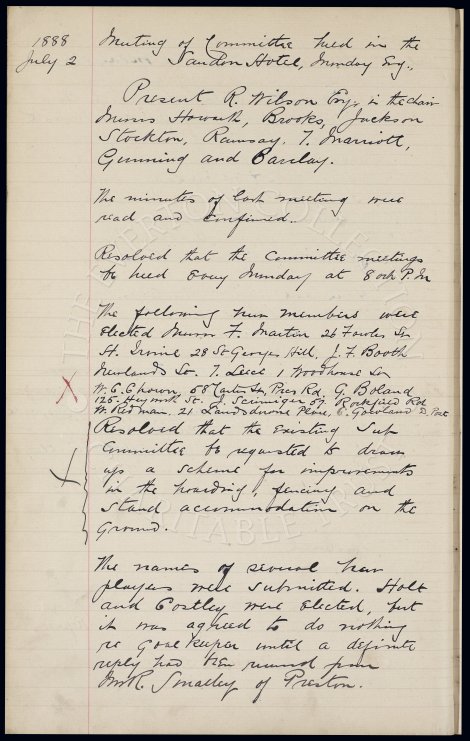 1888
July 2
Meeting of Committee held in the
Sandon Hotel, Monday Evg.,
Present R. Wilson Esq, in the chair
Messrs Howarth, Brooks, Jackson
Stockton, Ramsay, T. Marriott,
Gunning and Barclay.
The minutes of last meeting were
read and confirmed.
Resolved that the Committee meetings
be held every Monday at 8 och P.M
The following new members were
elected Messrs F. Martin 26 Fowler St
H. Irvine 28 St Georges Hill, J. F. Booth
Newlands St. T. Leece 1 Woodhouse St
W. C. Chown, 68 Pres Rd, G. Boland
125 Heyworth St. J. 57 Rockfield Rd
W. Redman, 21 Landsdowne Place,
X
Resolved that the existing Sub
Committee be requested to draw
up a scheme for improvements
in the hoarding, fencing and
Stand accommodation on the
ground.
X
The names of several new
players were submitted. Holt
and Costley were elected, but
it was agreed to do nothing
re Goalkeeper until a definite
reply had been received from
Mr R. Smalley of Preston.
THE EVERTON COLLECTION
CHARITABLE TRUST